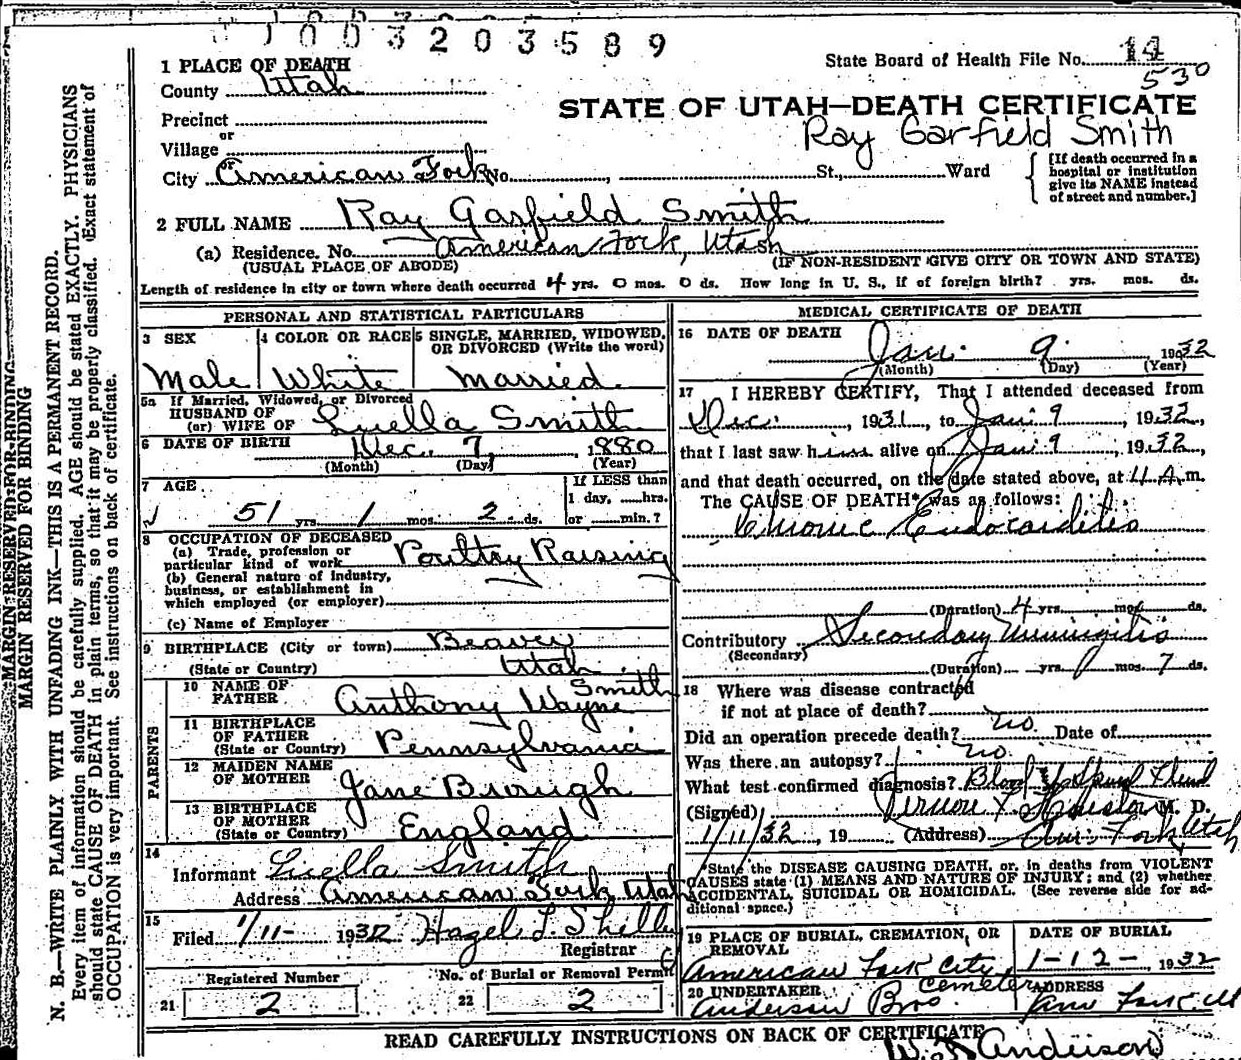 1003203589
State Board of Health File No. 14
530
1 PLACE OF DEATH
County Utah
STATE OF UTAH—DEATH CERTIFICATE
Precinct
or
Ray Garfield Smith
Village
or
City American Fork No. , St., Ward
[If death occurred in a
hospital or institution
give its NAME instead
of street and number.]
2 FULL NAME Ray Garfield Smith
(a) Residence. No. American Fork, Utah
(USUAL PLACE OF ABODE) (IF NON-RESIDENT GIVE CITY OR TOWN AND STATE)
Length of residence in city or town where death occurred 4 yrs. 0 mos. 0 ds. How long in U. S., if of foreign birth? yrs. mos. ds.
PERSONAL AND STATISTICAL PARTICULARS
3 SEX 4 COLOR OR RACE 5 SINGLE, MARRIED, WIDOWED,
OR DIVORCED (Write the word)
Male White Married.
5a If Married, Widowed, or Divorced
HUSBAND OF
(or) WIFE OF Luella Smith
6 DATE OF BIRTH Dec. 7, 1880
(Month) (Day) (Year)
7 AGE If LESS than
1 day, ......hrs.
51 yrs. 1 mos. 2 ds. or ......min.?
8 OCCUPATION OF DECEASED
(a) Trade, profession or
particular kind of work Poultry Raising
(b) General nature of industry,
business, or establishment in
which employed (or employer)
(c) Name of Employer
9 BIRTHPLACE (City or town) Beaver
(State or Country) Utah
PARENTS
10 NAME OF
FATHER Anthony Wayne Smith
11 BIRTHPLACE
OF FATHER
(State or Country) Pennsylvania
12 MAIDEN NAME
OF MOTHER Jane Brough
13 BIRTHPLACE
OF MOTHER
(State or Country) England
14
Informant Luella Smith
Address American Fork Utah
15
Filed 1/11- 1932 Hazel L.
Registrar
Registered Number No. of Burial or Removal Permit
21 2 22 2
MEDICAL CERTIFICATE OF DEATH
16 DATE OF DEATH
Jan. 9. 1932
(Month) (Day) (Year)
17 I HEREBY CERTIFY, That I attended deceased from
Dec. , 1931, to Jan 9 , 1932,
that I last saw him alive on Jan 9 , 1932,
and that death occurred, on the date stated above, at 4 A. m.
The CAUSE OF DEATH* was as follows:
Chronic Endocarditis
(Duration) 4 yrs. mos. ds.
Contributory Secondary Meningitis
(Secondary)
(Duration) yrs. mos. 7 ds.
18 Where was disease contracted
if not at place of death?
Did an operation precede death? no. Date of
Was there an autopsy? no.
What test confirmed diagnosis? Blood & Spinal Fluid
(Signed) Vernon M. D.
1/11/32, 19 (Address) Am. Fork, Utah
*State the DISEASE CAUSING DEATH, or, in deaths from VIOLENT
CAUSES state (1) MEANS AND NATURE OF INJURY; and (2) whether
ACCIDENTAL, SUICIDAL OR HOMICIDAL. (See reverse side for ad-
ditional space.)
19 PLACE OF BURIAL, CREMATION, OR
REMOVAL
American Fork City Cemetery
DATE OF BURIAL
1-12- 1932
20 UNDERTAKER
Anderson Bros.
ADDRESS
Am Fork Ut
READ CAREFULLY INSTRUCTIONS ON BACK OF CERTIFICATE
Anderson
MARGIN RESERVED FOR BINDING
MARGIN RESERVED FOR BINDING
N. B.—WRITE PLAINLY WITH UNFADING INK—THIS IS A PERMANENT RECORD.
Every item of information should be carefully supplied. AGE should be stated EXACTLY. PHYSICIANS
should state CAUSE OF DEATH in plain terms, so that it may be properly classified. Exact statement of
OCCUPATION is very important. See instructions on back of certificate.